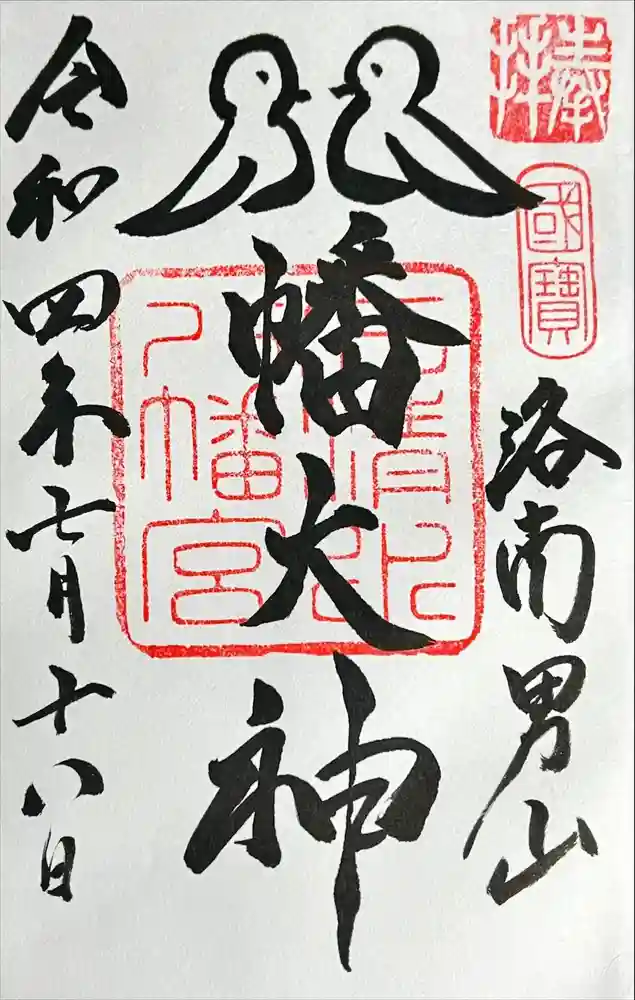 奉拝
國寶
洛南男山
八幡大神
石清水八幡宮
令和四年七月十八日